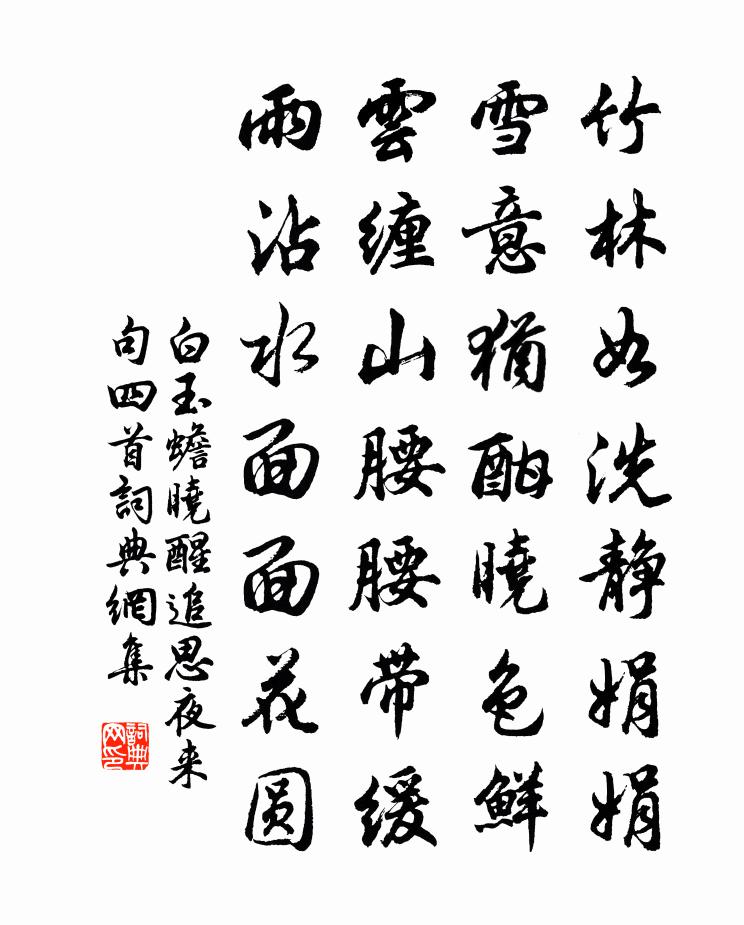 竹林如洗静娟娟
雪意猶酣曉色鮮
雲缠山腰腰带缓
雨沾水面面花圆
白玉蟾曉醒追思夜来
句四首詞典網集
詞典网印